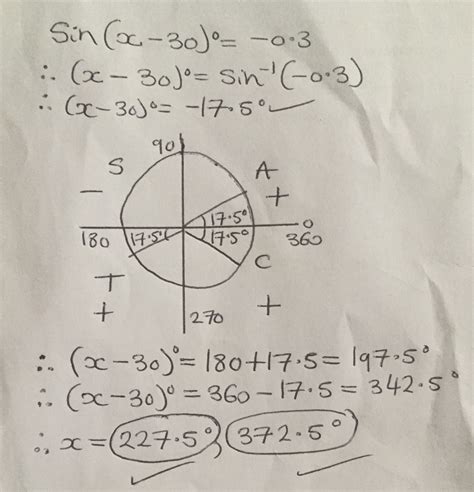 Sin(x-30)° = -0.3
∴ (x-30)° = Sin⁻¹(-0.3)
∴ (x-30)° = -17.5° ✓
90
S A
- +
17.5°
0
180 17.5 17.5° 360
T C
+ +
270
∴ (x-30)° = 180+17.5 = 197.5°
∴ (x-30)° = 360-17.5 = 342.5°
∴ x = 227.5°, 372.5°
✓ ✓